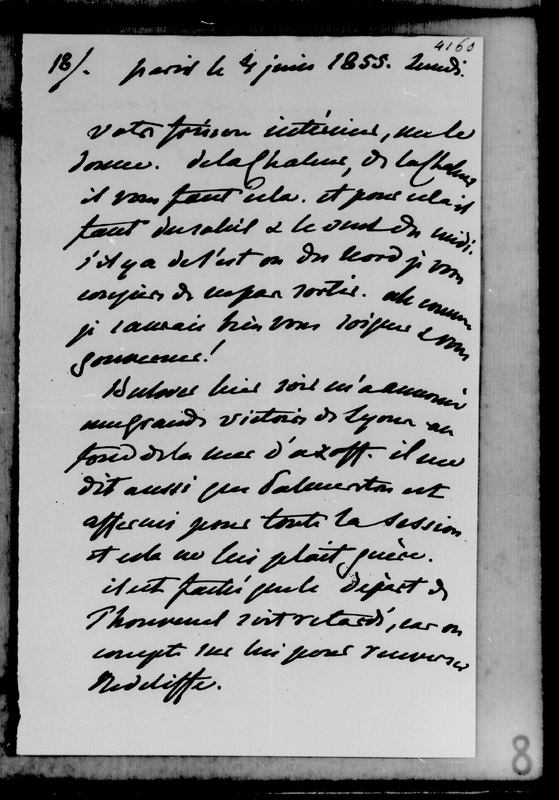 4160
18/. paris le 4 juin 1855. lundi.
votre frisson intérieur, me le
donne. de la Chaleur, de la Chaleur
il vous faut cela. et pour cela il
faut du soleil & le vent du midi.
s'il y a de l'est ou du Nord je vous
conjure de ne pas sortir. ah comme
je saurais bien vous soigner & vous
gouverner!
hier soir m'a annoncé
une grande victoire de Lyons au
fond de la mer d'azoff. il me
dit aussi que Palmerston est
affermi pour toute la session
et cela ne lui plait guère.
il est faché que le départ de
Thouvenel soit retardé, car on
compte sur lui pour renverser
Redcliffe.
8